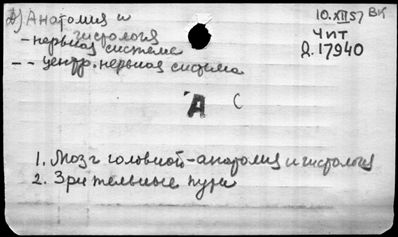 д) Анатомия и
гистология
- нервная система
- - центр. нервная система
10.XII57 ВК
Чит
Д.17940
А С
1. Мозг головной - анатомия и гистология
2. Зрительные пути